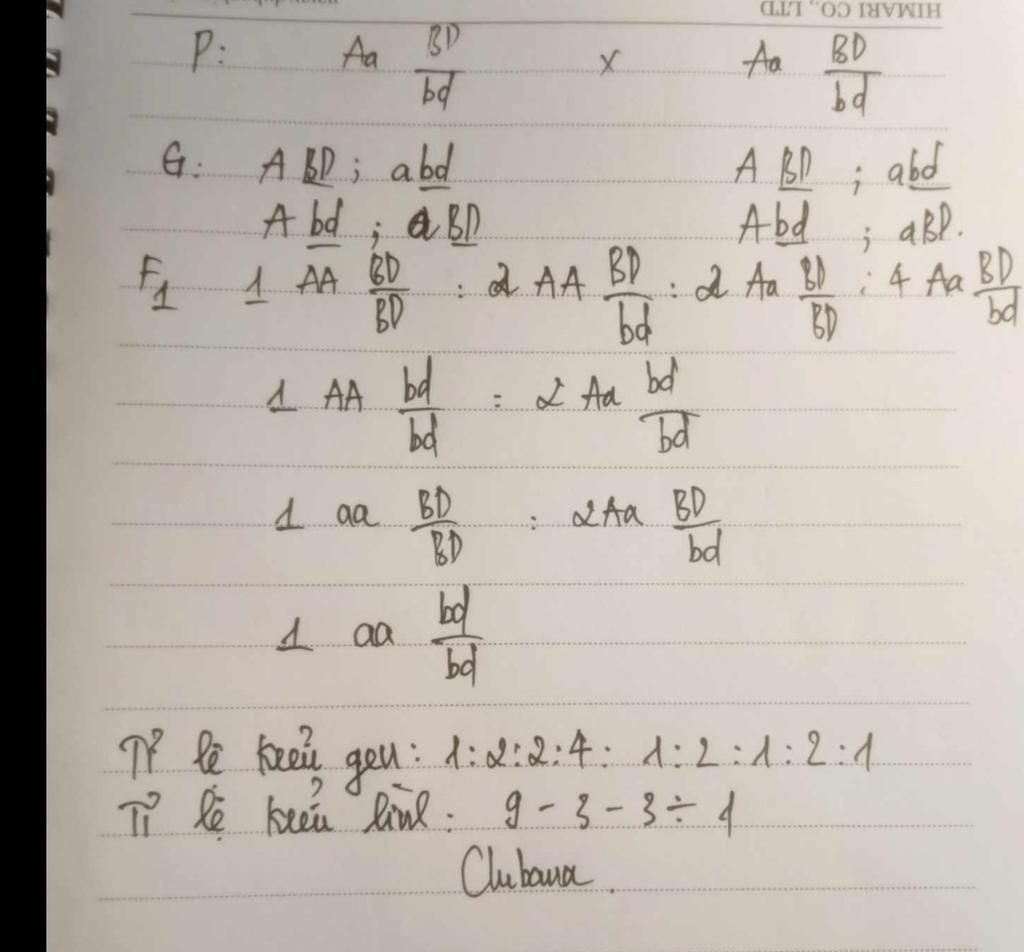 HIMARI CO., LTD
P: Aa BD/bd x Aa BD/bd
G: A BD ; a bd A BD ; a bd
A bd ; a BD A bd ; a BD.
F1 1 AA BD/BD : 2 AA BD/bd : 2 Aa BD/BD : 4 Aa BD/bd
1 AA bd/bd : 2 Aa bd/bd
1 aa BD/BD : 2 Aa BD/bd
1 aa bd/bd
Tỉ lệ kiểu gen: 1:2:2:4: 1:2:1:2:1
Tỉ lệ kiểu hình: 9 - 3 - 3 ÷ 1